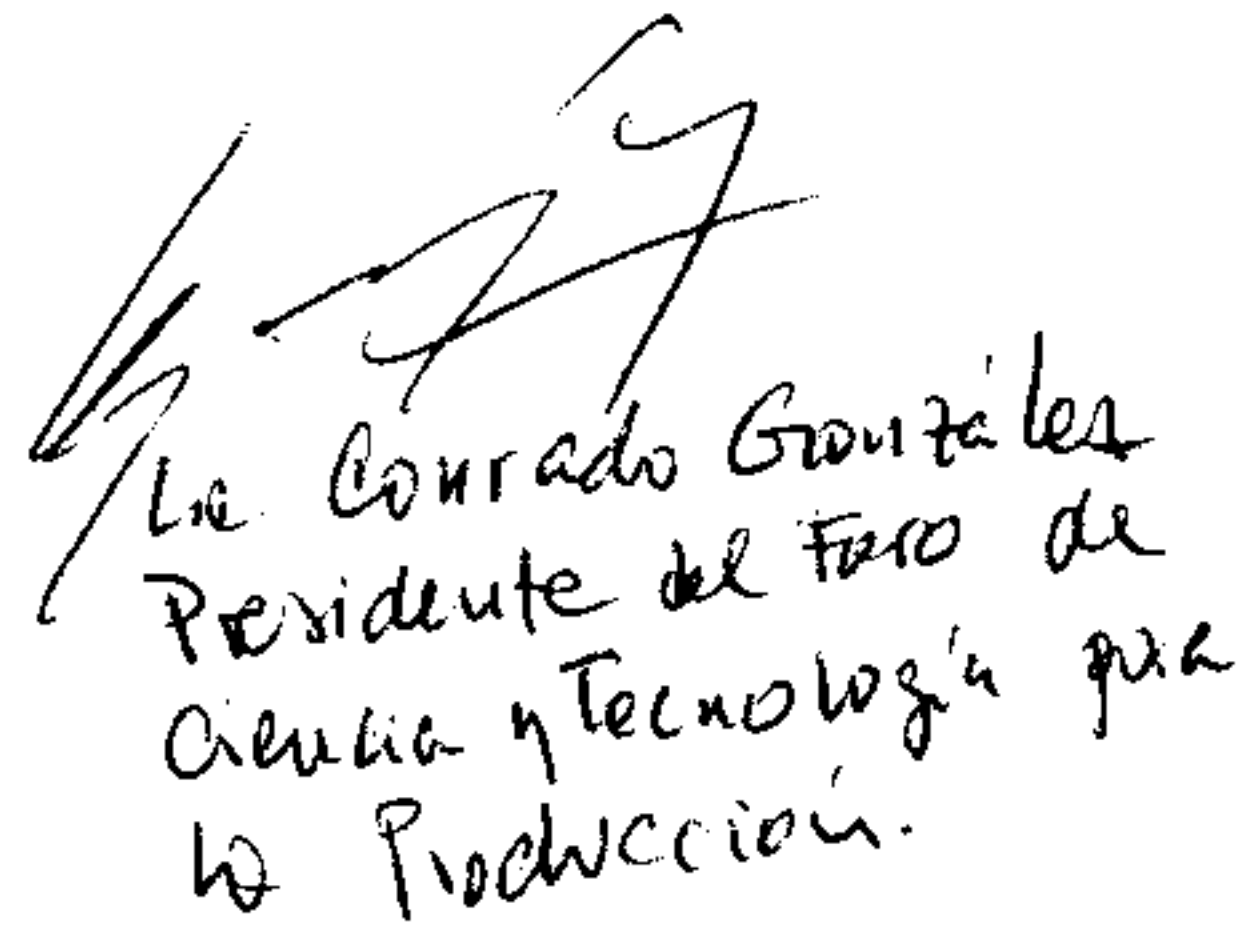 Lic Conrado Gonzáles
Presidente del Foro de
Ciencia y Tecnología para
la Producción.